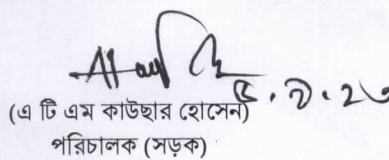 (এ টি এম কাউছার হোসেন)
পরিচালক (সড়ক)